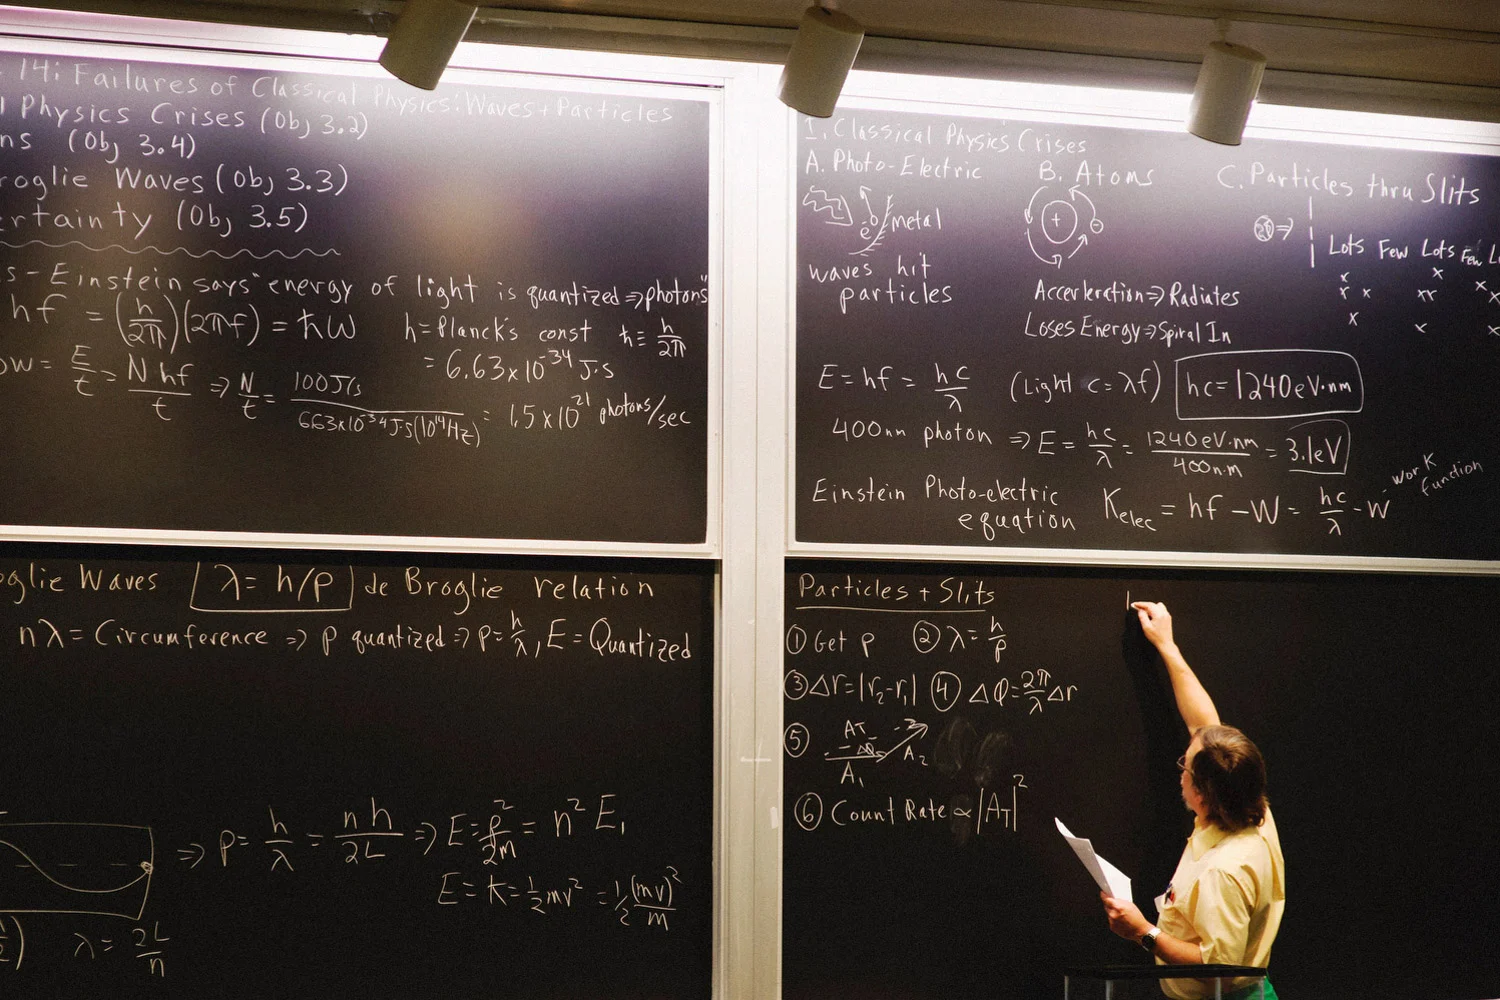 14: Failures of Classical Physics: Waves + Particles
l Physics Crises (Obj 3.2)
ns (Obj 3.4)
roglie Waves (Obj 3.3)
ertainty (Obj 3.5)
s - Einstein says "energy of light is quantized ⇒ photons"
hf = (h/2π)(2πf) = ħω h = Planck's const ħ ≡ h/2π
= 6.63x10^-34 J·s
ow = E/t = N hf/t ⇒ N/t = 100 J/s / 6.63x10^-34 J·s (10^14 Hz) = 1.5 x 10^21 photons/sec
I. Classical Physics Crises
A. Photo-Electric
metal
e-
waves hit
particles
B. Atoms
+
-
Accerleration ⇒ Radiates
Loses Energy ⇒ Spiral In
C. Particles thru Slits
Lots Few Lots Few L
E = hf = hc/λ (Light c = λf) hc = 1240 eV·nm
400nm photon ⇒ E = hc/λ = 1240 eV·nm / 400 nm = 3.1 eV
Einstein Photo-electric
equation K_elec = hf - W = hc/λ - W
work
function
oglie Waves λ = h/p de Broglie relation
nλ = Circumference ⇒ p quantized ⇒ p = h/λ, E = Quantized
⇒ p = h/λ = nh/2L ⇒ E = p²/2m = n² E₁
E = K = ½mv² = ½ (mv)²/m
λ = 2L/n
Particles + Slits
① Get p ② λ = h/p
③ Δr = |r₂-r₁| ④ Δφ = 2π/λ Δr
⑤ A_T A₁ A₂
⑥ Count Rate ∝ |A_T|²